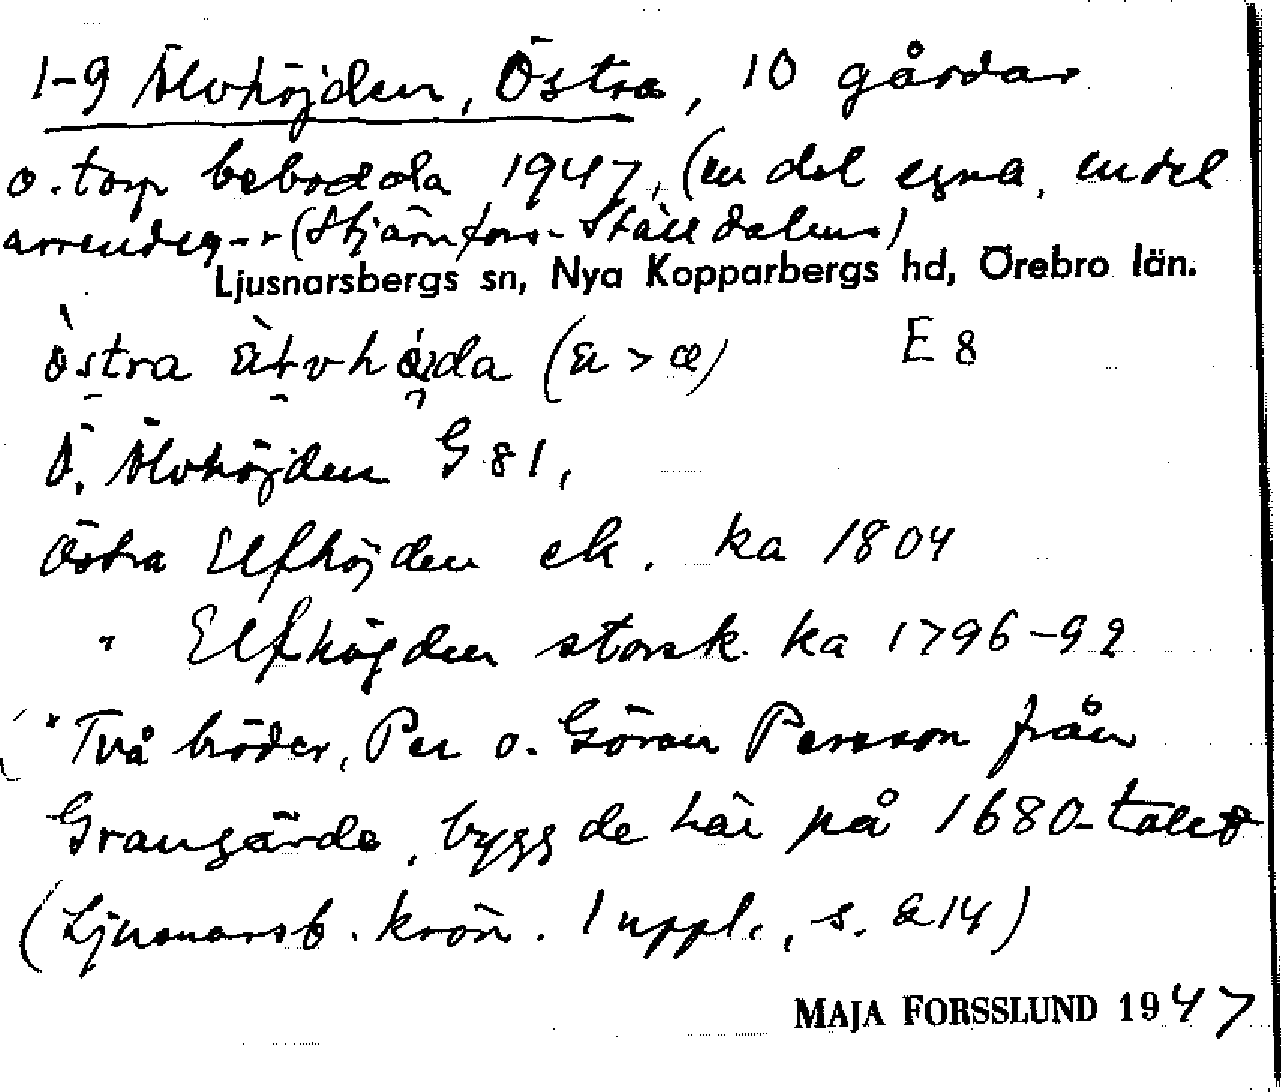 1-9 Älvhöjden, Östra, 10 gårdar
o. torp bebodda 1947, (en del egna, en del
arrendeg-r (Stjärnfors-Ställdalens)
Ljusnarsbergs sn, Nya Kopparbergs hd, Örebro län.
östra E 8
Ö. Älvhöjden G 81,
Östra Elfhöjden ek. ka 1804
" Elfhögden storsk. ka 1796-92
"Två bröder, Per o. Göran Persson från
Grangärde, byggde här på 1680-talet
(Ljusnarsb. krön. 1 uppl., s. 214)
MAJA FORSSLUND 1947